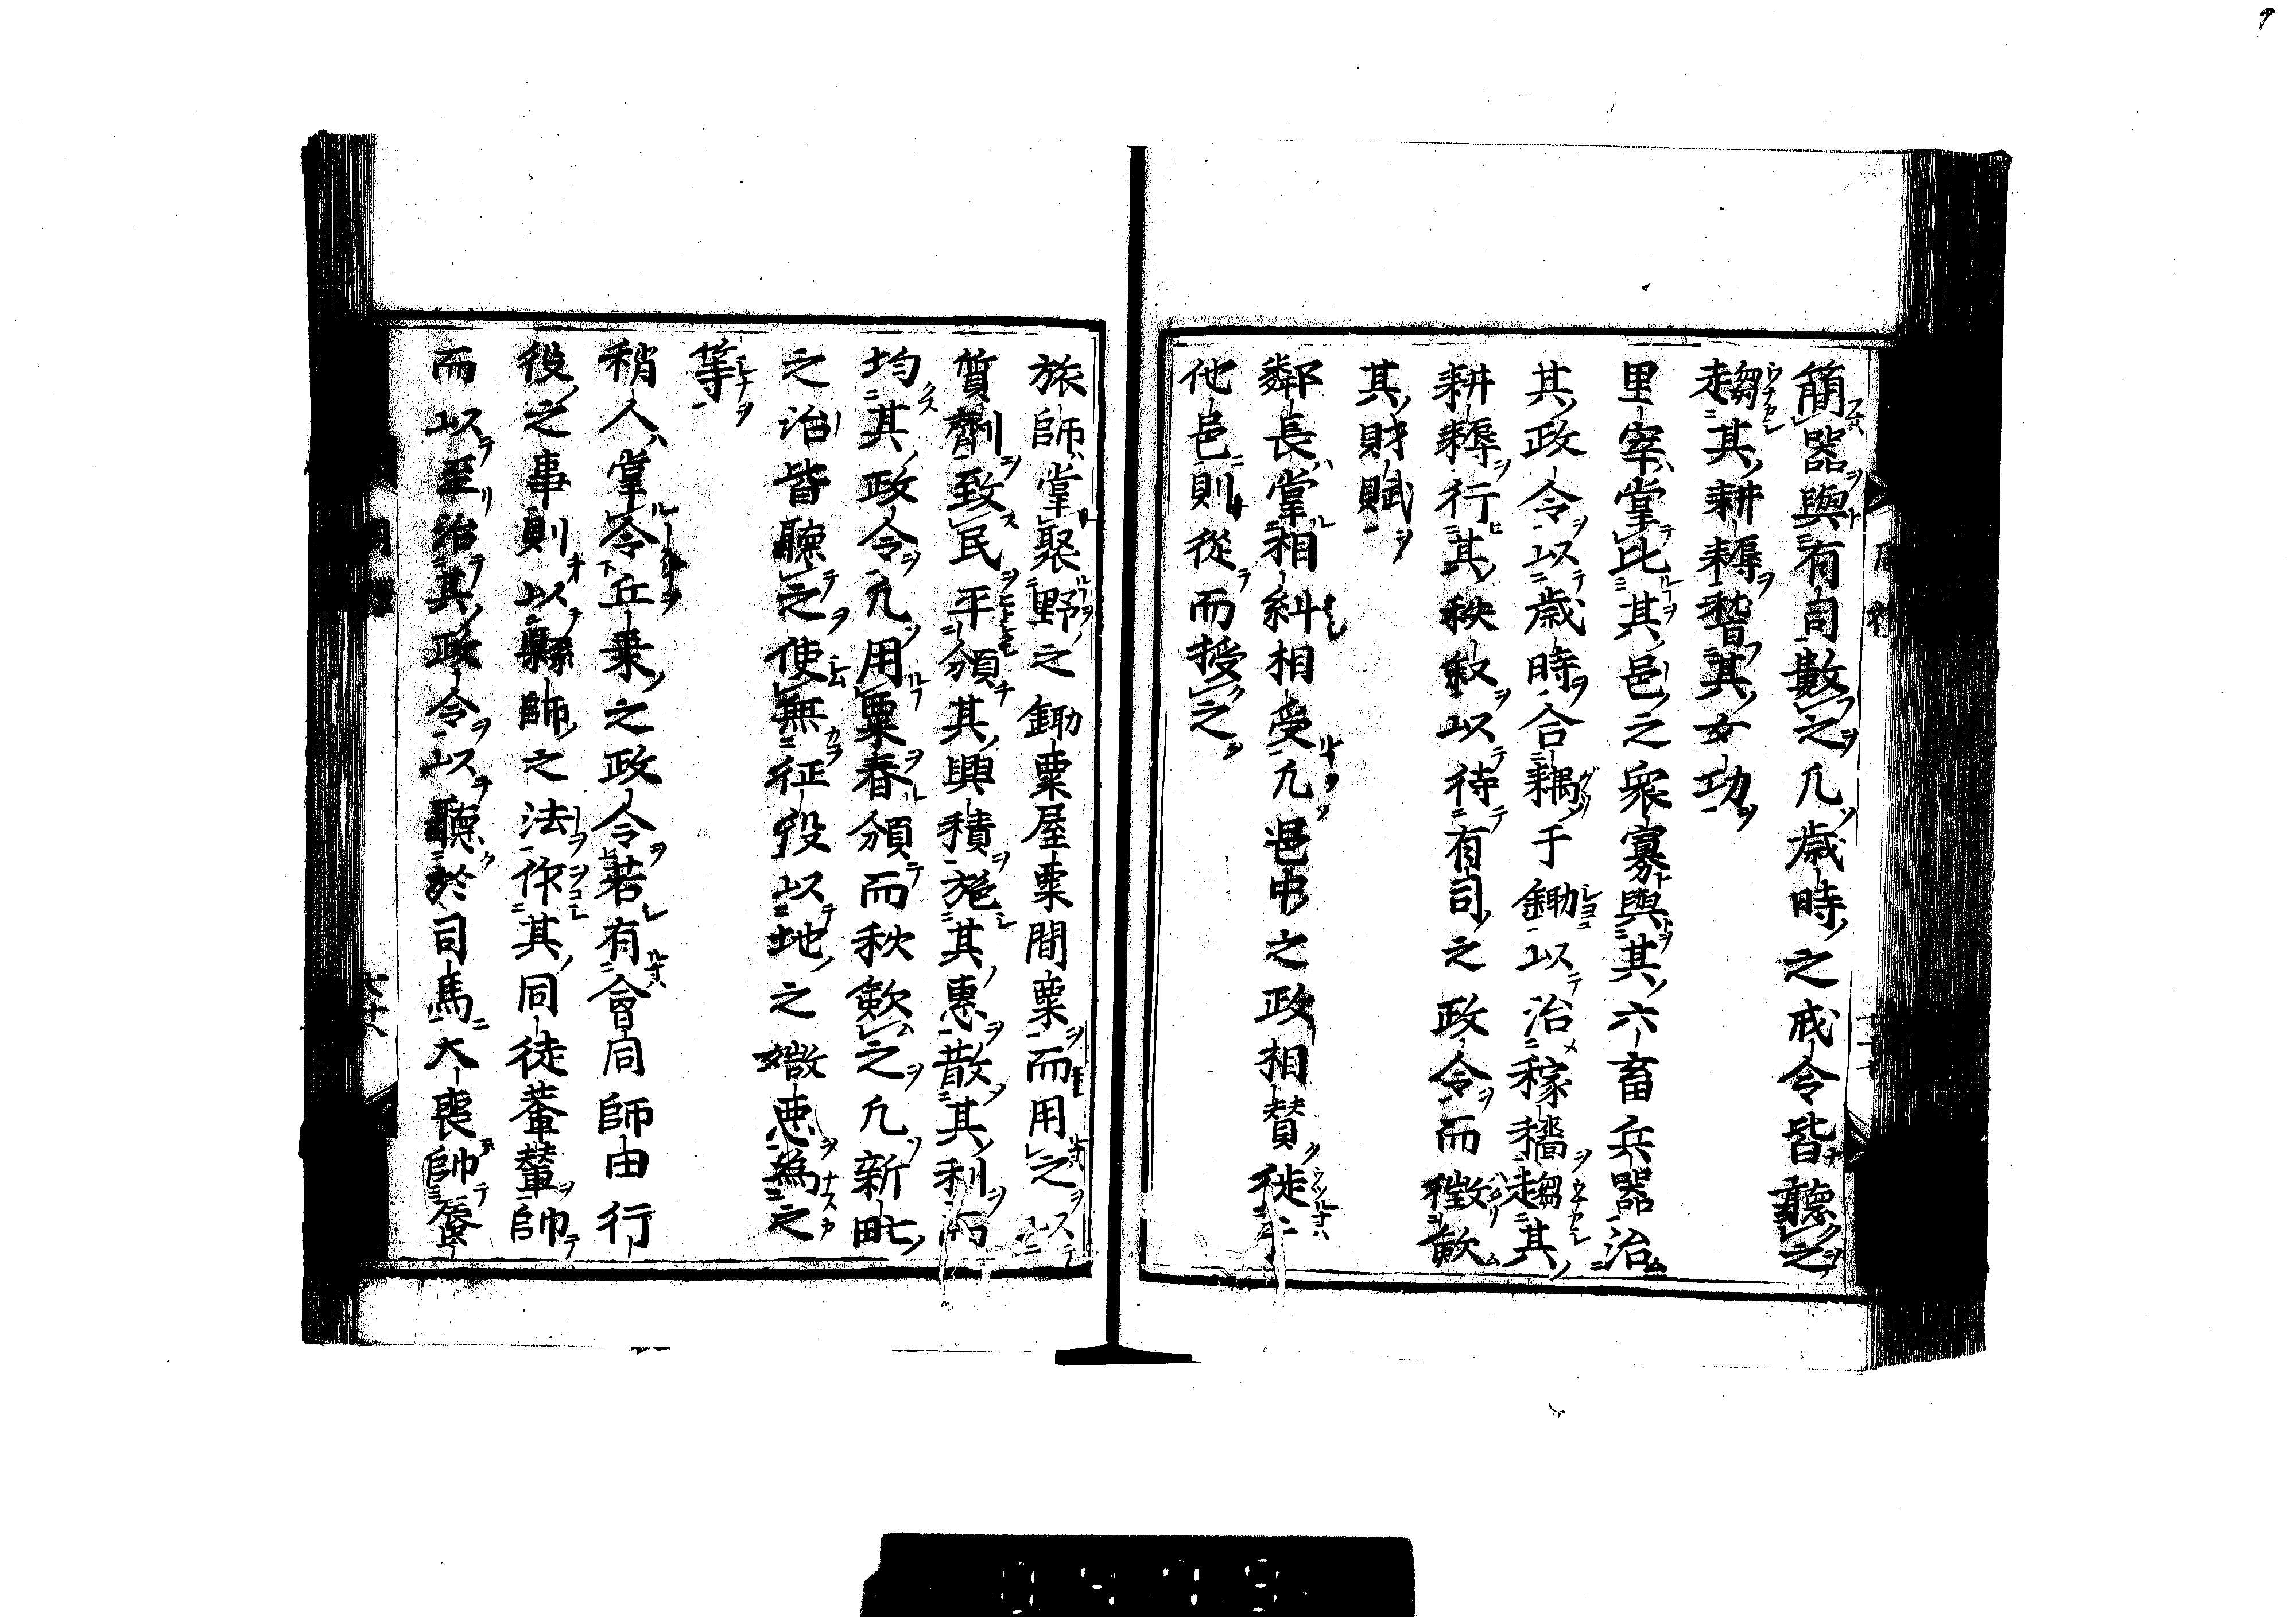 簡器與有司數之凡歲時之戒令皆聽之
趨其耕耨稽其女功
里宰掌比其邑之衆寡與其六畜兵器治
其政令以歲時合耦于鋤以治稼穡趨其
耕耨行其秩敘以待有司之政令而徵歛
其財賦
鄰長掌相糾相受凡邑中之政相贊徙于
他邑則從而授之
旅師掌聚野之鋤粟屋粟間粟而用之以
質劑致民平頒其興積施其惠散其利而
均其政令凡用粟春頒而秋歛之凡新甿
之治皆聽之使無征役以地之媺惡為之
等
稍人掌令丘乗之政令若有會同師田行
役之事則以縣師之法作其同徒輂輦帥
而以至治其政令以聽於司馬大喪帥蜃